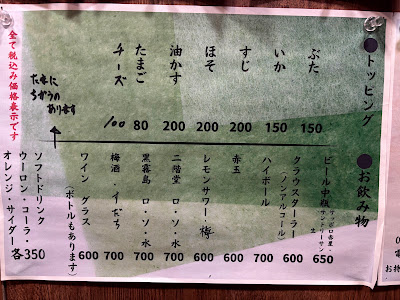 ●トッピング
ぶた 150
いか 150
すじ 200
ほそ 200
油かす 200
たまご 80
チーズ 100
たまに
ちがうの
あります
●お飲み物
ビール中瓶 650
クラウスターラー
(ノンアルコール) 600
ハイボール 700
赤玉 600
レモンサワー・梅 700
二階堂 ロ・ソ・水 700
黒霧島 ロ・ソ・水 700
梅酒・すだち 700
ワイン グラス 600
(ボトルもあります)
ソフトドリンク
ウーロン・コーラ
オレンジ・サイダー 各350
全て税込み価格表示です